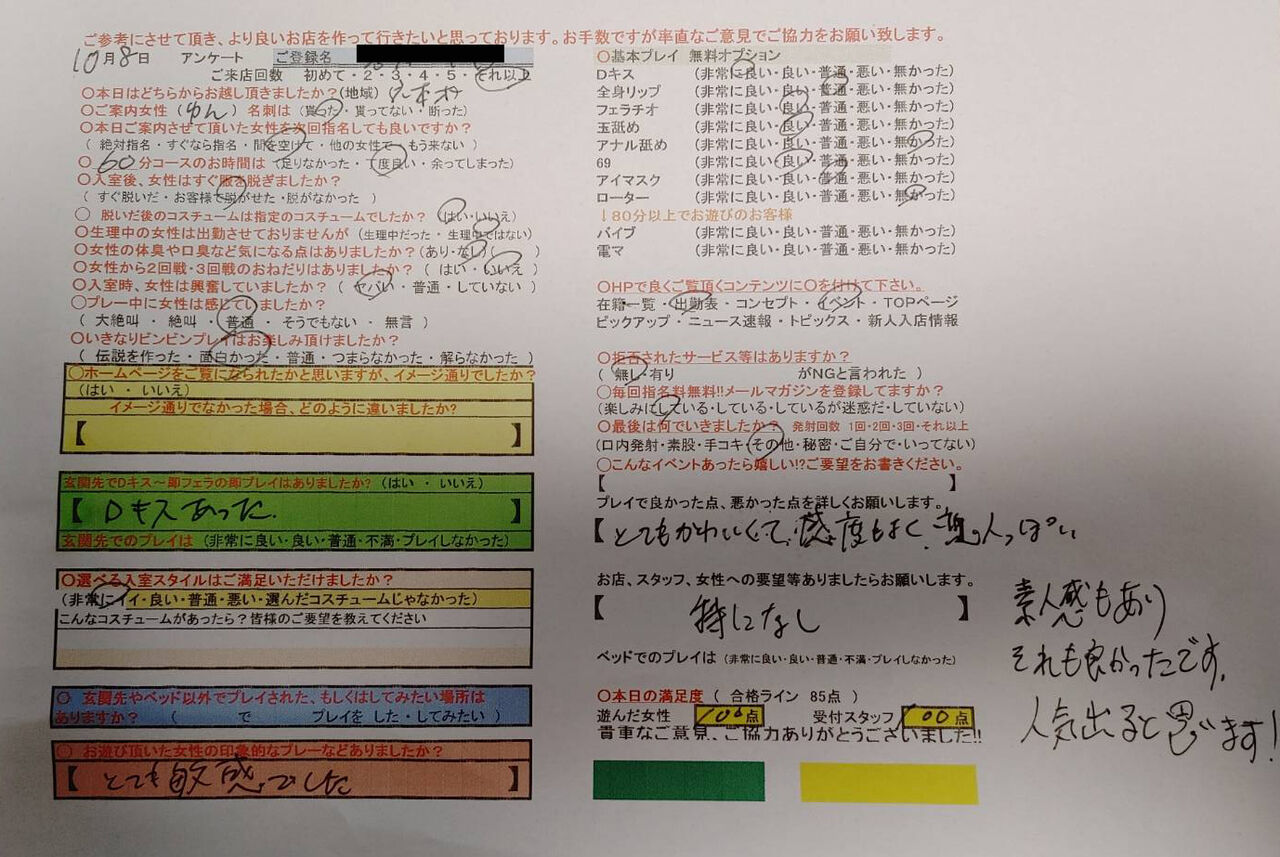 ご参考にさせて頂き、より良いお店を作って行きたいと思っております。お手数ですが率直なご意見でご協力をお願い致します。
10月8日 アンケート ご登録名
ご来店回数 初めて・2・3・4・5・それ以上
〇本日はどちらからお越し頂きましたか?(地域)
〇ご案内女性 (ゆん) 名刺は (貰った・貰ってない・断った)
〇本日ご案内させて頂いた女性を次回指名しても良いですか?
( 絶対指名・すぐなら指名・間を空けて・他の女性で・もう来ない )
〇 60分コースのお時間は (足りなかった・丁度良い・余ってしまった)
〇入室後、女性はすぐ服を脱ぎましたか?
( すぐ脱いだ・お客様で脱がせた・脱がなかった )
〇 脱いだ後のコスチュームは指定のコスチュームでしたか? (はい・いいえ)
〇生理中の女性は出勤させておりませんが (生理中だった・生理中ではない)
〇女性の体臭や口臭など気になる点はありましたか?(あり・なし)( )
〇女性から2回戦・3回戦のおねだりはありましたか? ( はい・いいえ )
〇入室時、女性は興奮していましたか? ( ヤバい・普通・していない )
〇プレー中に女性は感じていましたか?
( 大絶叫 ・ 絶叫 ・ 普通 ・ そうでもない ・ 無言 )
〇いきなりビンビンプレイはお楽しみ頂けましたか?
( 伝説を作った・面白かった・普通・つまらなかった・解らなかった )
〇ホームページをご覧になられたかと思いますが、イメージ通りでしたか?
(はい ・ いいえ)
イメージ通りでなかった場合、どのように違いましたか?
【 】
玄関先でDキス～即フェラの即プレイはありましたか? (はい ・ いいえ)
【 Dキスあった. 】
玄関先でのプレイは (非常に良い・良い・普通・不満・プレイしなかった)
〇選べる入室スタイルはご満足いただけましたか?
(非常にイイ・良い・普通・悪い・選んだコスチュームじゃなかった)
こんなコスチュームがあったら?皆様のご要望を教えてください
〇 玄関先やベッド以外でプレイされた、もしくはしてみたい場所は
ありますか? ( で プレイを した・してみたい )
〇 お遊び頂いた女性の印象的なプレーなどありましたか?
【 とても敏感でした 】
〇基本プレイ 無料オプション
Dキス (非常に良い・良い・普通・悪い・無かった)
全身リップ (非常に良い・良い・普通・悪い・無かった)
フェラチオ (非常に良い・良い・普通・悪い・無かった)
玉舐め (非常に良い・良い・普通・悪い・無かった)
アナル舐め (非常に良い・良い・普通・悪い・無かった)
69 (非常に良い・良い・普通・悪い・無かった)
アイマスク (非常に良い・良い・普通・悪い・無かった)
ローター (非常に良い・良い・普通・悪い・無かった)
↓80分以上でお遊びのお客様
バイブ (非常に良い・良い・普通・悪い・無かった)
電マ (非常に良い・良い・普通・悪い・無かった)
〇HPで良くご覧頂くコンテンツに〇を付けて下さい。
在籍一覧・出勤表・コンセプト・イベント・TOPページ
ピックアップ・ニュース速報・トピックス・新人入店情報
〇拒否されたサービス等はありますか?
( 無し・有り がNGと言われた )
〇毎回指名料無料!!メールマガジンを登録してますか?
(楽しみにしている・している・しているが迷惑だ・していない)
〇最後は何でいきましたか? 発射回数 1回・2回・3回・それ以上
(口内発射・素股・手コキ・その他・秘密・ご自分で・いってない)
〇こんなイベントあったら嬉しい!?ご要望をお書きください。
【 】
プレイで良かった点、悪かった点を詳しくお願いします。
【とてもかわいくて、感度もよく、
お店、スタッフ、女性への要望等ありましたらお願いします。
【 特になし 】
ベッドでのプレイは (非常に良い・良い・普通・不満・プレイしなかった)
〇本日の満足度 ( 合格ライン 85点 )
遊んだ女性 100点 受付スタッフ 100点
貴重なご意見、ご協力ありがとうございました!!
素人感もあり
それも良かったです。
人気出ると思います!